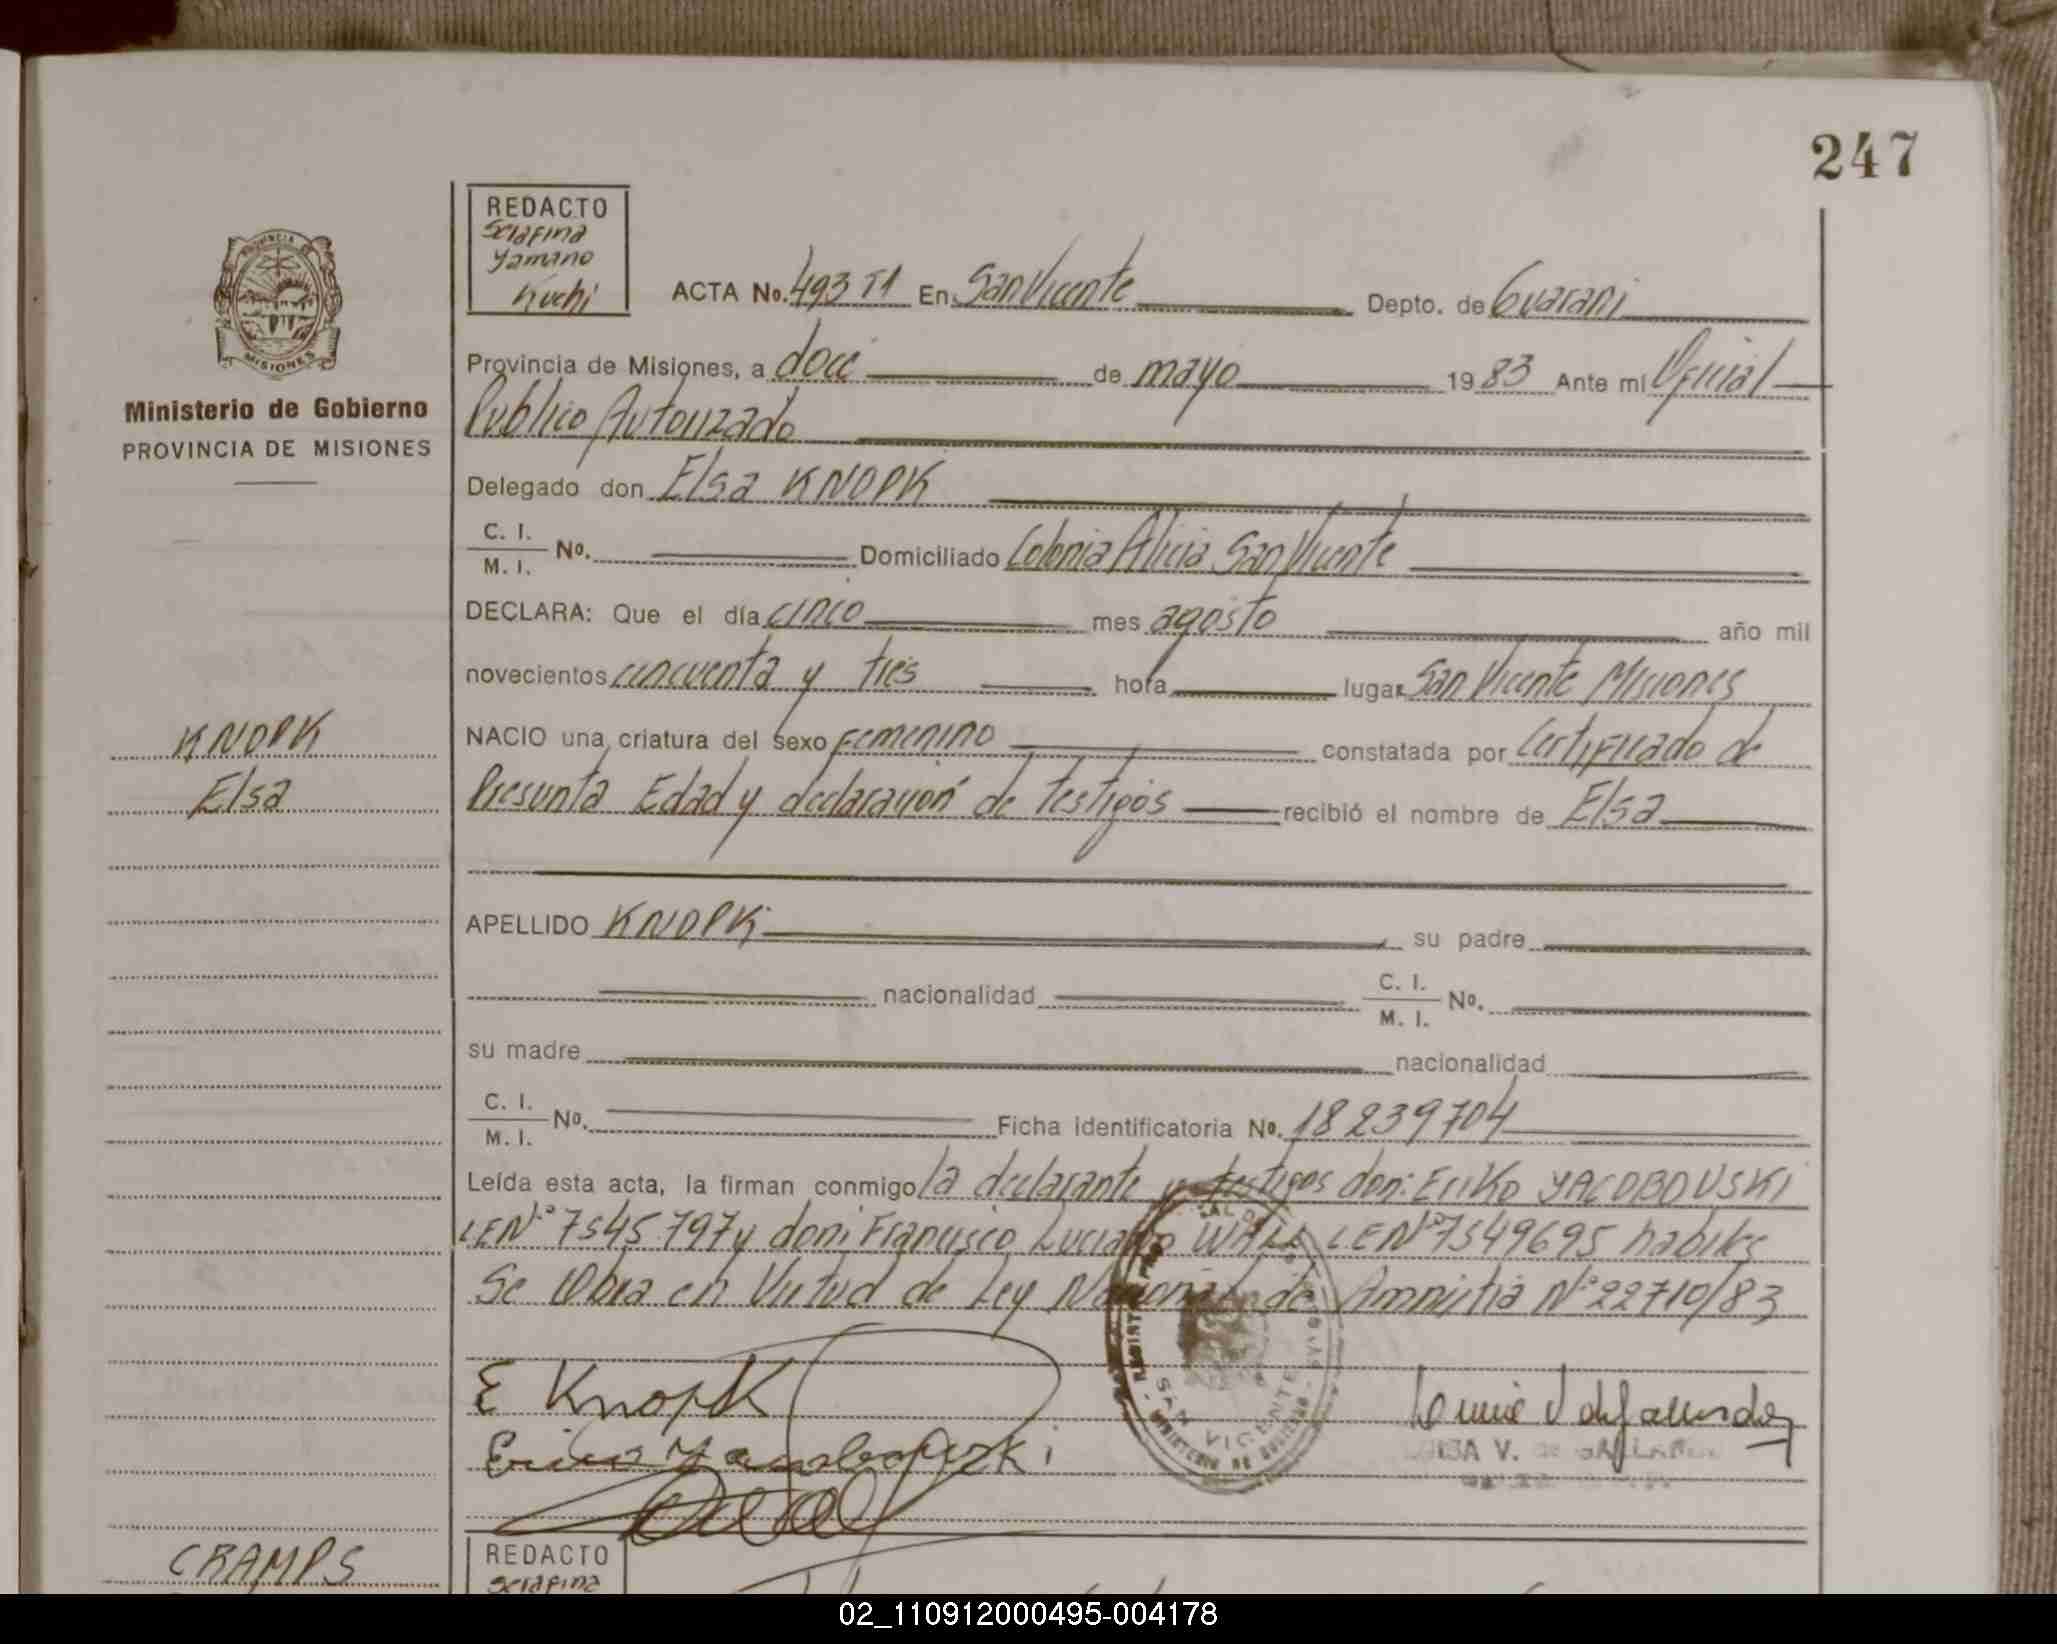 247
REDACTO
Serafina
Yamino
Kuchi
PROVINCIA DE
MISIONES
Ministerio de Gobierno
PROVINCIA DE MISIONES
ACTA No. 493 T1 En San Vicente Depto. de Guarani
Provincia de Misiones, a doce de mayo 1983 Ante mi Oficial
Publico Autorizado
Delegado don Elsa KNOPK
C. I.
M. I. No. Domiciliado Colonia Alicia San Vicente
DECLARA: Que el día cinco mes agosto año mil
novecientos cincuenta y tres hora lugar San Vicente Misiones
KNOPK
Elsa
NACIO una criatura del sexo Femenino constatada por Certificado de
Presunta Edad y declarayon de testigos recibió el nombre de Elsa
APELLIDO KNOPK su padre
nacionalidad C. I.
M. I. No.
su madre nacionalidad
C. I.
M. I. No. Ficha identificatoria No. 18239704
Leída esta acta, la firman conmigo la declarante y testigos don: Eriko YACOBOVSKI
LEN° 7545797 y don: Francisco Luciano WALL LEN° 7549695 habiles
Se Obra en Virtud de Ley Nacional de Amnistia N° 22710/83
E Knopk
SAN VICENTE
MINISTERIO DE GOBIERNO
CRAMPS
REDACTO
Serafina
02_110912000495-004178